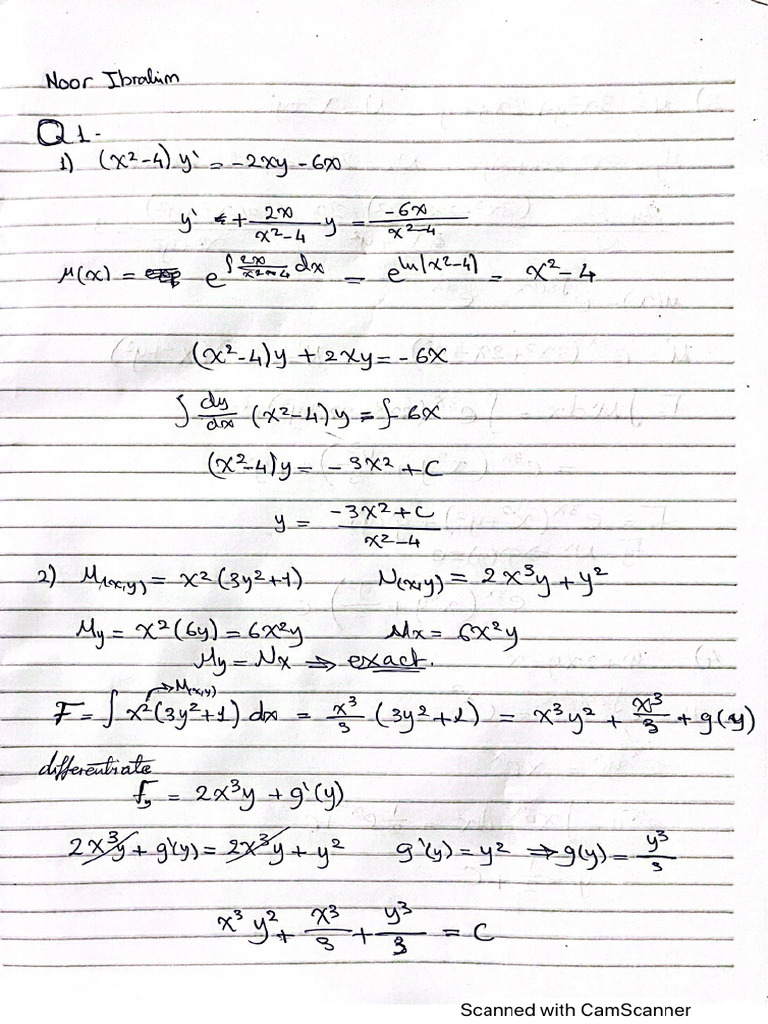 Noor Ibrahim
Q1.
1) (x²-4) y' = -2xy - 6x
y' + 2x/(x²-4) y = -6x/(x²-4)
μ(x) = e^(∫ 2x/(x²-4) dx) = e^(ln|x²-4|) = x²-4
(x²-4)y + 2xy = -6x
∫ dy/dx (x²-4)y = ∫-6x
(x²-4)y = -3x² + C
y = (-3x²+C)/(x²-4)
2) M(x,y) = x²(3y²+1) N(x,y) = 2x³y + y²
My = x²(6y) = 6x²y Nx = 6x²y
My = Nx ⇒ exact.
→M(x,y)
F = ∫ x²(3y²+1) dx = x³/3 (3y²+1) = x³y² + x³/3 + g(y)
differentiate
fy = 2x³y + g'(y)
2x³y + g'(y) = 2x³y + y² g'(y) = y² ⇒ g(y) = y³/3
x³y² + x³/3 + y³/3 = C
Scanned with CamScanner